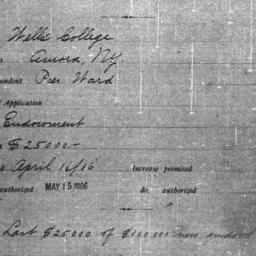 Wells College
Aurora, N.Y.
pondent Pres. Ward
Application
Endowment
$25000.-
April 16/06 Increase promised
authorized MAY 15 1906 do. authorized
"
Last $25000 of $100,000 new endow